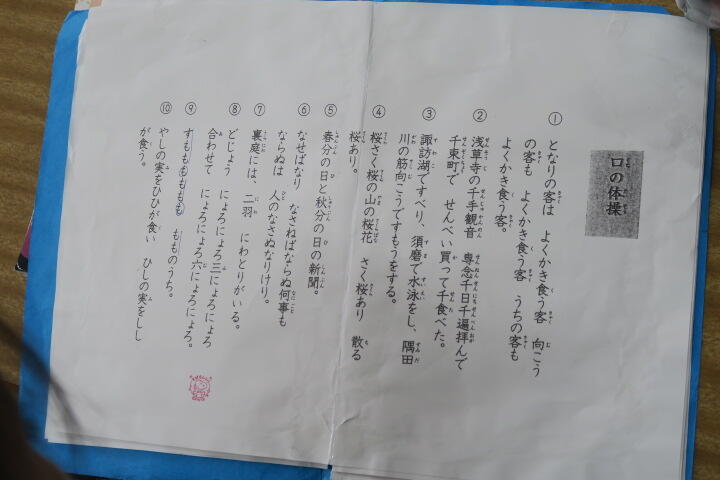 口の体操
① となりの客は よくかき食う客 向こう
の客も よくかき食う客 うちの客も
よくかき食う客。
② 浅草寺の千手観音 専念千日千遍拝んで
千束町で せんべい買って千食べた。
③ 諏訪湖ですべり、須磨で水泳をし、隅田
川の筋向こうですもうをする。
④ 桜さく桜の山の桜花 さく桜あり 散る
桜あり。
⑤ 春分の日と秋分の日の新聞。
⑥ なせばなり なさねばならぬ何事も
ならぬは 人のなさぬなりけり。
⑦ 裏庭には、二羽 にわとりがいる。
⑧ どじょう にょろにょろ三にょろにょろ
合わせて にょろにょろ六にょろにょろ。
⑨ すももももももも もものうち。
⑩ やしの実をひひが食い ひしの実をしし
が食う。